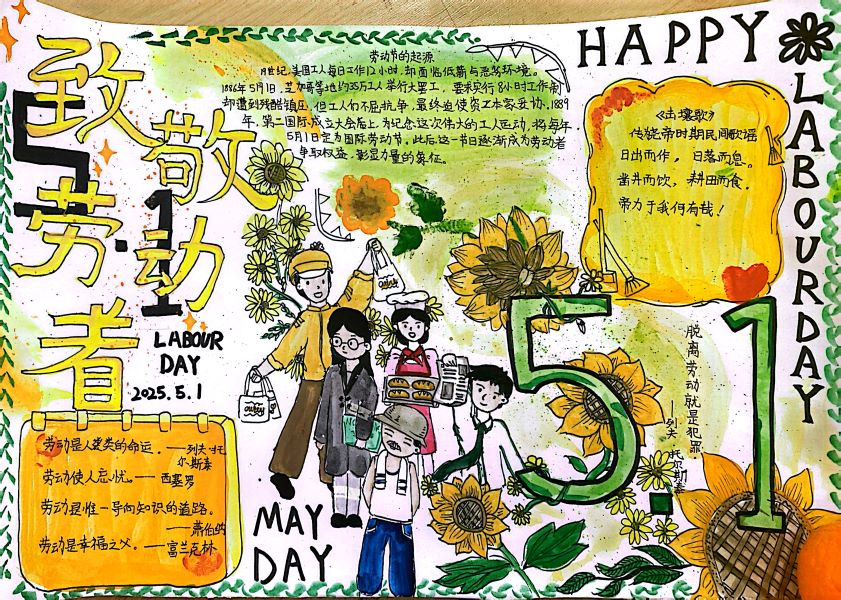 致敬
劳动者
5.1
LABOUR
DAY
2025.5.1
劳动节的起源
19世纪,美国工人每日工作12小时,却面临低薪与恶劣环境。
1886年5月1日,芝加哥等地约35万工人举行大罢工,要求实行8小时工作制
却遭到残酷镇压,但工人们不屈抗争,最终迫使资本家妥协,1889
年,第二国际成立大会后上,为纪念这次伟大的工人运动,将每年
5月1日定为国际劳动节。此后这一节日逐渐成为劳动者
争取权益,彰显力量的象征。
HAPPY
LABOURDAY
《击壤歌》
传说帝时期民间歌谣
日出而作,日落而息。
凿井而饮,耕田而食。
帝力于我何有哉!
5.1
脱离劳动就是犯罪
——列夫·托尔斯泰
劳动是人类的命运。——列夫·托
尔·斯泰
劳动使人忘忧。——西塞罗
劳动是惟一导向知识的道路。
——萧伯纳
劳动是幸福之父。——富兰克林
MAY
DAY